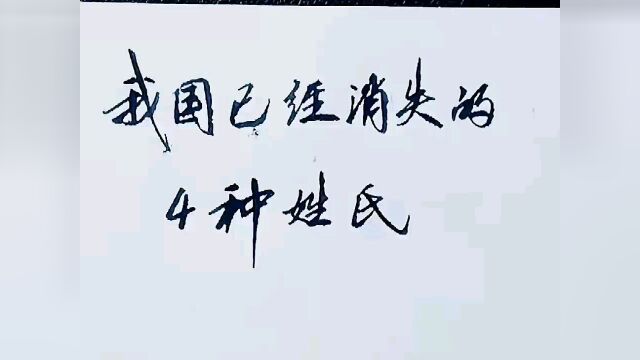 我国已经消失的
4种姓氏